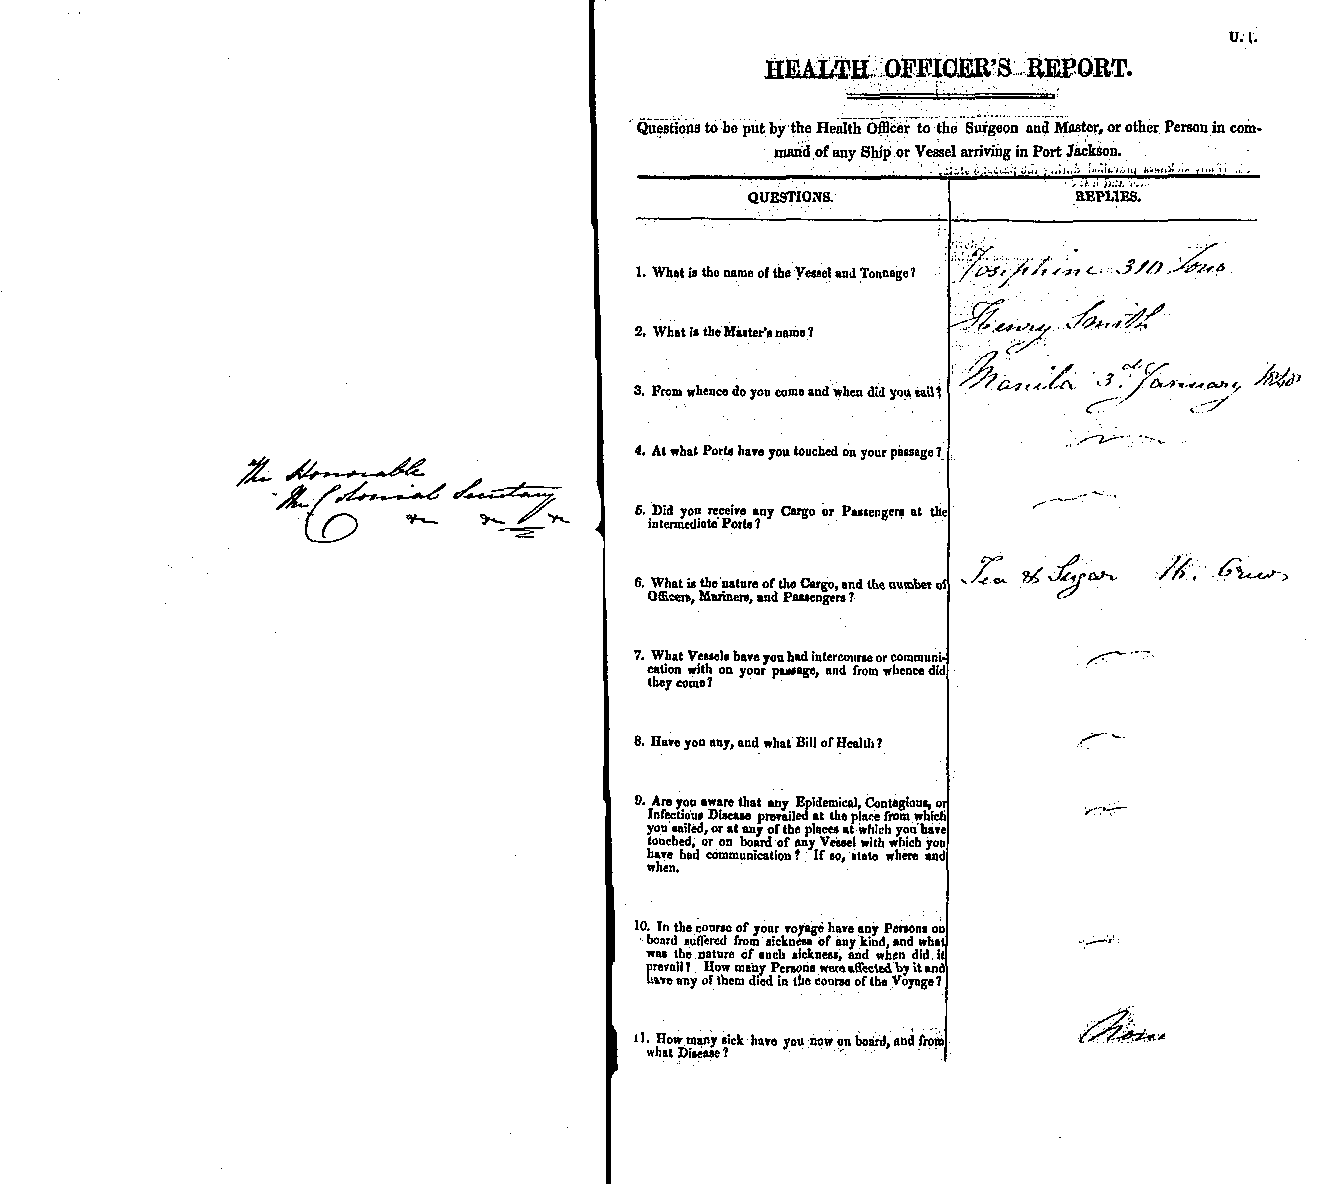 The Honorable
The Colonial Secretary
&c &c &c
U. 1.
HEALTH OFFICER'S REPORT.
Questions to be put by the Health Officer to the Surgeon and Master, or other Person in com-
mand of any Ship or Vessel arriving in Port Jackson.
QUESTIONS. REPLIES.
1. What is the name of the Vessel and Tonnage? Josephine 310 Tons
2. What is the Master's name? Henry Smith
3. From whence do you come and when did you sail? Manila 3rd January
4. At what Ports have you touched on your passage?
5. Did you receive any Cargo or Passengers at the
intermediate Ports?
6. What is the nature of the Cargo, and the number of Tea & Sugar 16. Crew
Officers, Mariners, and Passengers?
7. What Vessels have you had intercourse or communi-
cation with on your passage, and from whence did
they come?
8. Have you any, and what Bill of Health?
9. Are you aware that any Epidemical, Contagious, or
Infectious Disease prevailed at the place from which
you sailed, or at any of the places at which you have
touched, or on board of any Vessel with which you
have had communication? If so, state where and
when.
10. In the course of your voyage have any Persons on
board suffered from sickness of any kind, and what
was the nature of such sickness, and when did it
prevail? How many Persons were affected by it and
have any of them died in the course of the Voyage?
11. How many sick have you now on board, and from None
what Disease?